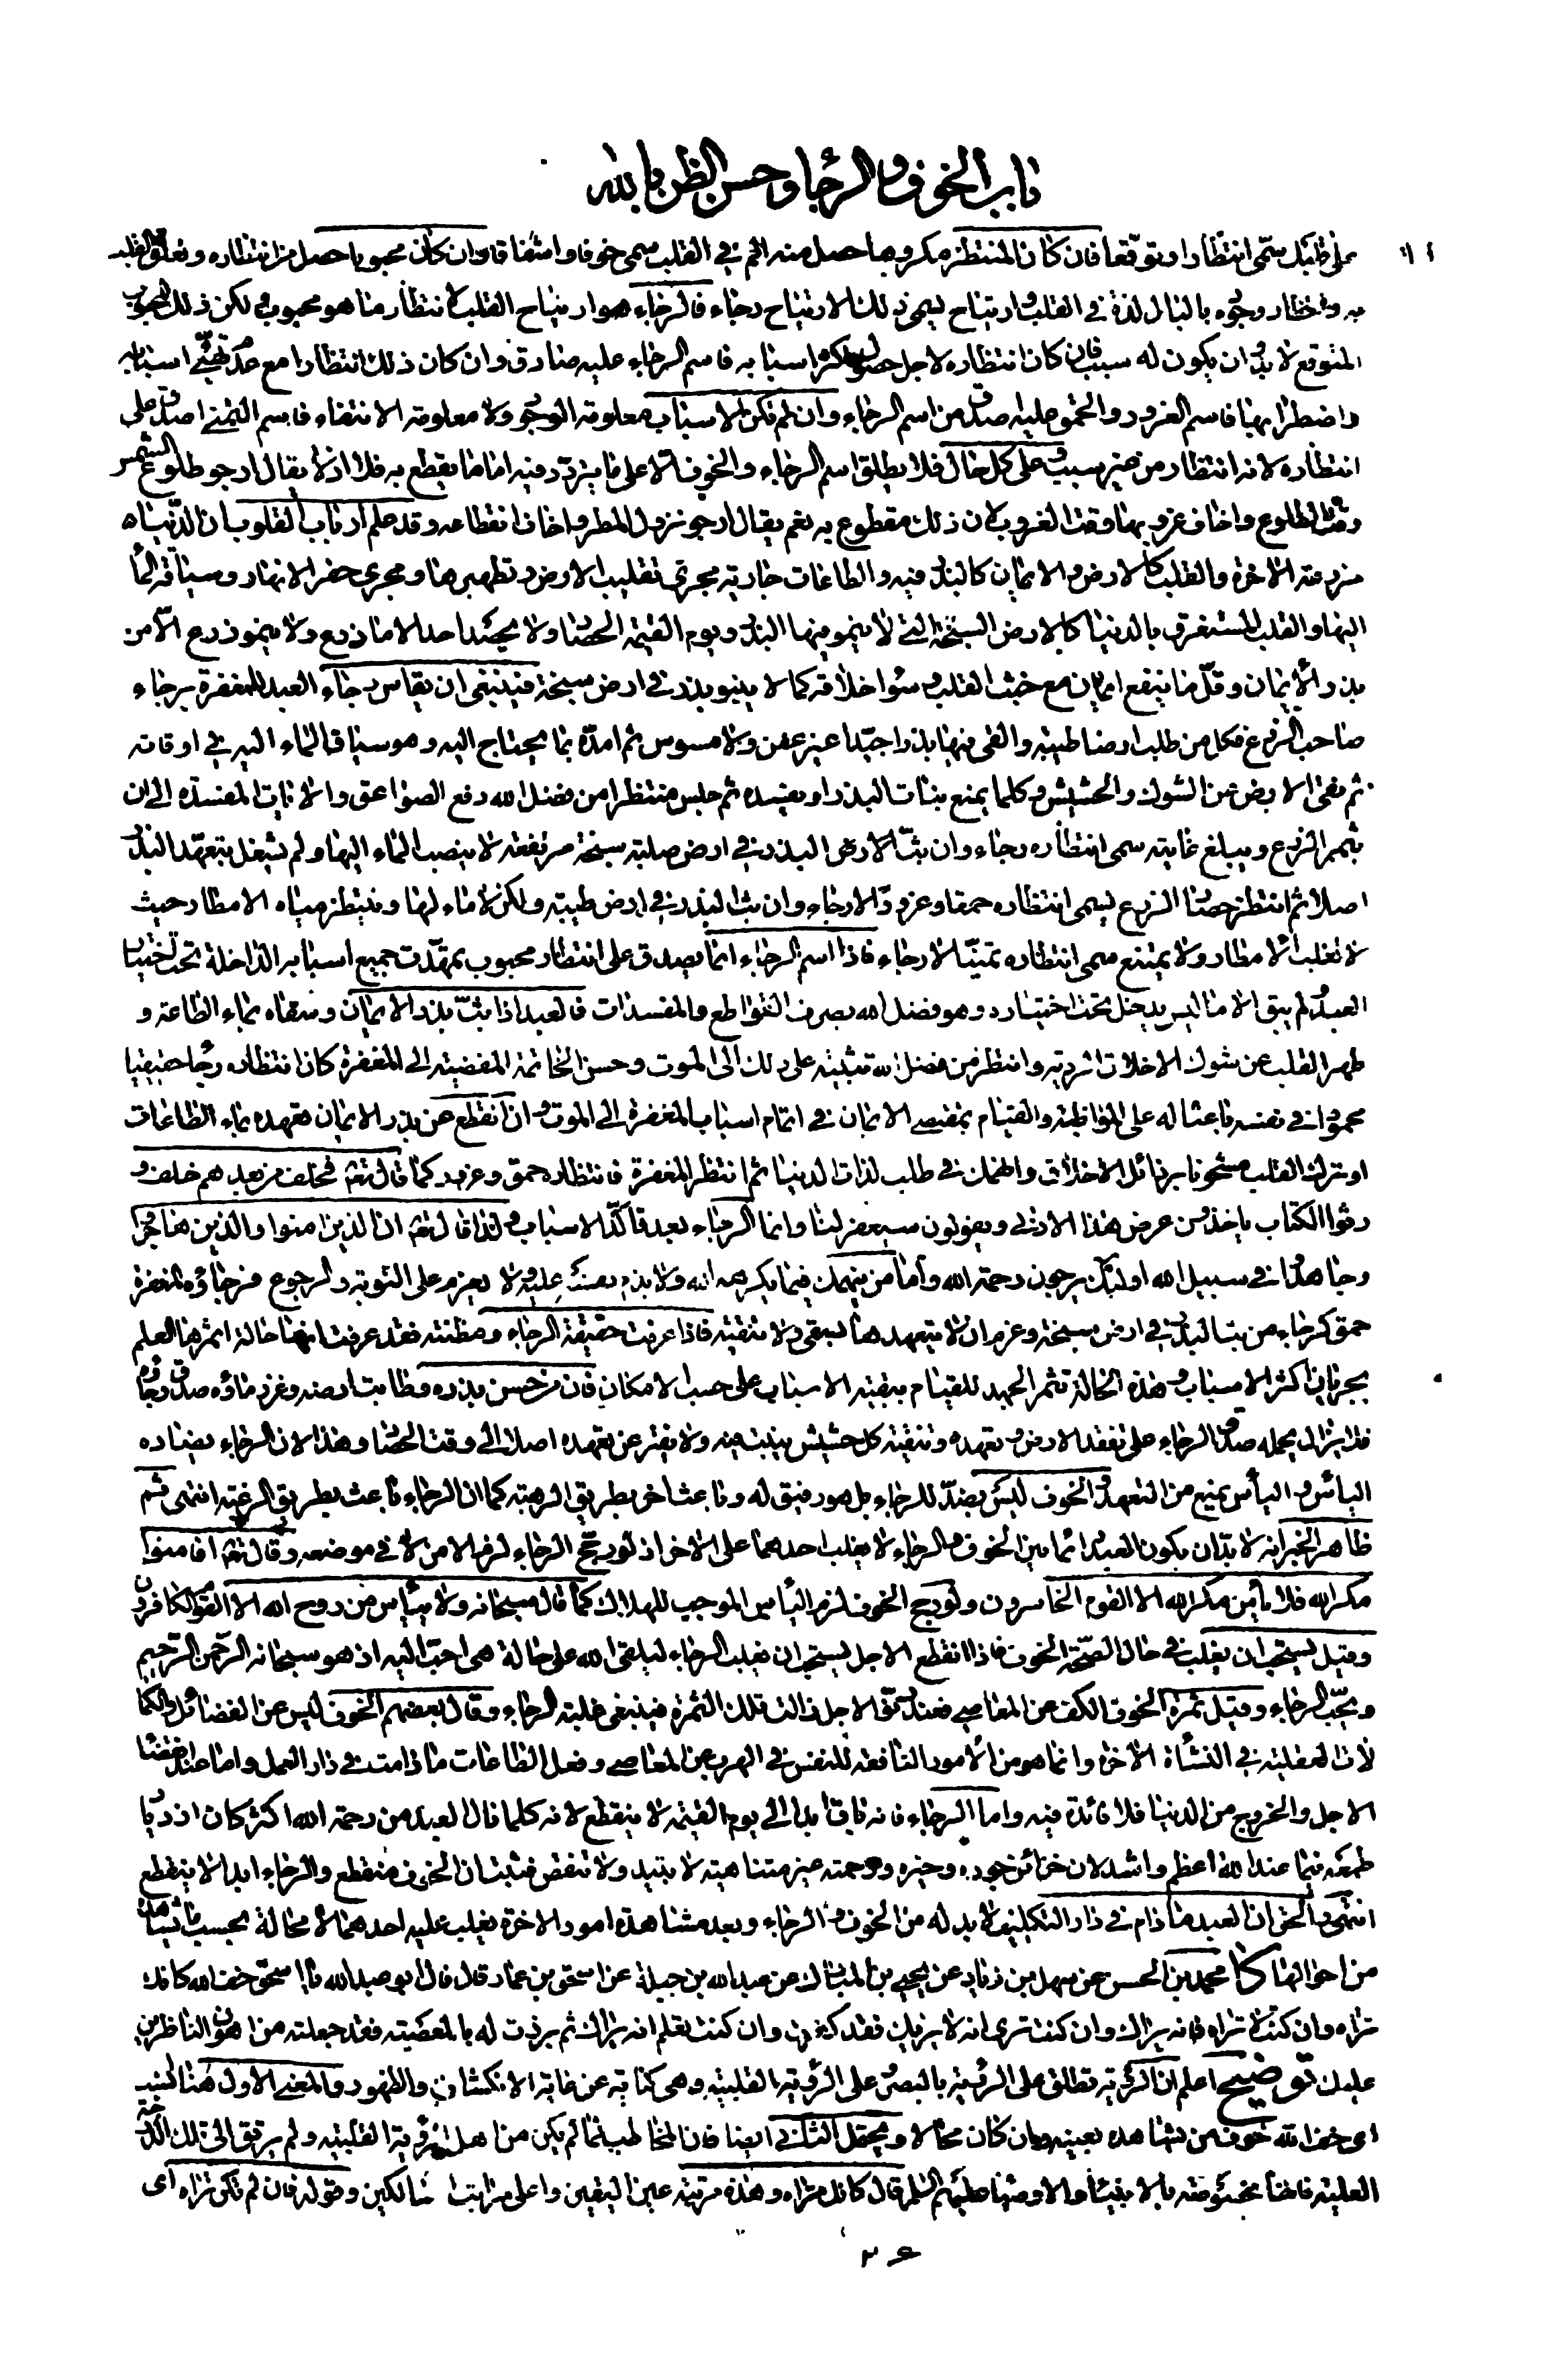 باب الخوف والرجا وحسن الظن بالله
على قلبك سمّى انتظارا وتوقّعا فان كان المنتظر مكروها حصل منه الم في القلب سمى خوفا واشفاقا وان كان محبوبا حصل من انتظاره وتعلق القلب
به واخطار وجوده بالبال لذة في القلب وارتياح ليمى ذلك الارتياح رجاء فالرجاء هو ارتياح القلب لانتظار ما هو محبوب ولكن ذلك المحبوب
المتوقع لا بدّ ان يكون له سبب فان كان انتظاره لاجل حصول اكثر اسبابه فاسم الرجاء عليه صادق وان كان ذلك انتظارا مع عدم تهيّئ اسبابه
واضطرابها فاسم الغرور والحمق عليه صدق من اسم الرجاء وان لم تكن الاسباب معلومة الوجود ولا معلومة الانتفاء فاسم التمنى اصدق على
انتظاره لانه انتظار من غير سبب وعلى كل حال فلا يطلق اسم الرجاء والخوف الا على ما يتردّد فيه اما ما يقطع به فلا اذ لا يقال ارجو طلوع الشمس
وقت الطلوع واخاف غروبها وقت الغروب لان ذلك مقطوع به نعم يقال ارجو نزول المطر واخاف انقطاعه وقد علم ارباب القلوب ان الدنيا
مزرعة الاخرة والقلب كالارض والايمان كالبذر فيه والطاعات جارية مجرى تقليب الارض وتطهيرها ومجرى حفر الانهار وسياقة الماء
اليها والقلب المستغرق بالدنيا كالارض السبخة التي لا ينمو فيها البذر ويوم القيمة الحصاد ولا يحصد احد الا ما زرع ولا ينمو زرع الا من
بذر الايمان وقلّ ما ينفع ايمان مع خبث القلب وسوء اخلاقه كما لا ينمو بذر في ارض سبخة فينبغى ان يقاس رجاء العبد للمغفرة برجاء
صاحب الزرع فكل من طلب ارضا طيبة والقى فيها بذرا جيّدا غير عفن ولا مسوس ثم امدّه بما يحتاج اليه وهو سياق الماء اليه في اوقاته
ثم نقى الارض عن الشوك والحشيش وكلما يمنع نبات البذر او يفسده ثم جلس منتظرا من فضل الله دفع الصواعق والافات المفسدة الى ان
يثمر الزرع ويبلغ غايته سمى انتظاره رجاء وان بثّ البذر في ارض صلبة سبخة مرتفعة لا ينصب الماء اليها ولم يشغل بتعهد البذر
اصلا ثم انتظر حصاد الزرع ليسمى انتظاره حمقا وغرورا لا رجاء وان بث البذر في ارض طيبة ولكن لا ماء لها وينتظر مياه الامطار حيث
لا تغلب الامطار ولا يمتنع سمى انتظاره تمنّيا لا رجاء فاذا اسم الرجاء انما يصدق على انتظار محبوب تمهّدت جميع اسبابه الداخلة تحت اختيار
العبد ولم يبق الا ما ليس يدخل تحت اختياره وهو فضل الله بصرف القواطع والمفسدات فالعبد اذا بثّ بذر الايمان وسقاه بماء الطاعة و
طهر القلب عن شوك الاخلاق الردية وانتظر من فضل الله تثبيته على ذلك الى الموت وحسن الخاتمة المفضية الى المغفرة كان انتظاره رجاء حقيقيا
محمودا في نفسه باعثا له على المواظبة والقيام بمقتضى الايمان في اتمام اسباب المغفرة الى الموت وان انقطع عن بذر الايمان تعهده بماء الطاعات
او ترك القلب مشحونا برذائل الاخلاق وانهمك في طلب لذات الدنيا ثم انتظر المغفرة فانتظاره حمق وغرور كما قال تعم فخلف من بعدهم خلف و
رثوا الكتاب ياخذون عرض هذا الادنى ويقولون سيغفر لنا وانما الرجاء بعد تاكّد الاسباب ولذا قال تعم ان الذين امنوا والذين هاجروا
وجاهدوا في سبيل الله اولئك يرجون رحمة الله واما من ينهمك فيما يكرهه الله ولا يذم نفسه عليه ولا يعزم على التوبة والرجوع فرجاؤه المغفرة
حمق كرجاء من بث البذر في ارض سبخة وعزم ان لا يتعهدها بسقى ولا تنقية فاذا عرفت حقيقة الرجاء ومظنته فقد عرفت انها حالة اثمرها العلم
بجريان اكثر الاسباب وهذه الحالة تثمر الجهد للقيام ببقية الاسباب على حسب الامكان فان من حسن بذره وطابت ارضه وغزر ماؤه صدق رجاؤه
فلا يزال يحمله صدق الرجاء على تفقد الارض وتعهده وتنقية كل حشيش ينبت فيه ولا يفتر عن تعهده اصلا الى وقت الحصاد وهذا لان الرجاء يضاده
الياس واليأس يمنع من التعهد والخوف ليس بضدّ للرجاء بل هو رفيق له وباعث اخر بطريق الرهبة كما ان الرجاء باعث بطريق الرغبة انتهى ثم
ظاهر الخبر انه لا بدّ ان يكون العبد دائما بين الخوف والرجاء لا يغلب احدهما على الاخر اذ لو رجح الرجاء لزم الامن لا في موضعه وقال تعم افامنوا
مكر الله فلا يأمن مكر الله الا القوم الخاسرون ولو رجح الخوف لزم الياس الموجب للهلاك كما قال سبحانه ولا ييأس من روح الله الا القوم الكافرون
وقيل يستحب ان يغلب في حال الصحة الخوف فاذا انقطع الاجل يستحب ان يغلب الرجاء ليلقى الله على حالة هى احب اليه اذ هو سبحانه الرحمن الرحيم
ويحبّ الرجاء وقيل ثمرة الخوف الكف عن المعاصى فعند دنوّ الاجل زالت تلك الثمرة فينبغى غلبة الرجاء وقال بعضهم الخوف ليس من الفضائل والكما
لات العقلية في النشأة الاخرة وانما هو من الامور النافعة للنفس في الهرب عن المعاصى وفعل الطاعات ما دامت في دار العمل واما عند انقضاء
الاجل والخروج من الدنيا فلا فائدة فيه واما الرجاء فانه باق ابدا الى يوم القيمة لا ينقطع لانه كلما نال العبد من رحمة الله اكثر كان ازدياد
طمعه فيما عند الله اعظم واشد لان خزائن جوده وخيره ورحمته غير متناهية لا يبيد ولا تنقص فثبت ان الخوف منقطع والرجاء ابدا لا ينقطع
انتهى والحق ان العبد ما دام في دار التكليف لا بد له من الخوف والرجاء وبعد مشاهدة امور الاخرة يغلب عليه احدهما لا محالة بحسب ما يشاهده
من احوالها كا محمد بن الحسن عن سهل بن زياد عن يحيى بن المبارك عن عبد الله بن جبلة عن اسحق بن عمار قال قال ابو عبد الله يا اسحق خف الله كانك
تراه وان كنت لا تراه فانه يراك وان كنت ترى انه لا يراك فقد كفرت وان كنت تعلم انه يراك ثم برزت له بالمعصية فقد جعلته من اهون الناظرين
عليك توضيح اعلم ان الرؤية تطلق على الرؤية بالبصر وعلى الرؤية القلبية وهى كناية عن غاية الانكشاف والظهور والمعنى الاول هنا انسب
اى خف الله خوف من يشاهده بعينه وان كان محالا ويحتمل الثانى ايضا فان المخاطب لما لم يكن من اهل الرؤية القلبية ولم يرتق الى تلك الدرجة
العلية فانها مخصوصة بالانبياء والاوصياء عليهم السلام قال كانك تراه وهذه مرتبة عين اليقين واعلى مراتب السالكين وقوله فان لم تكن تراه اى